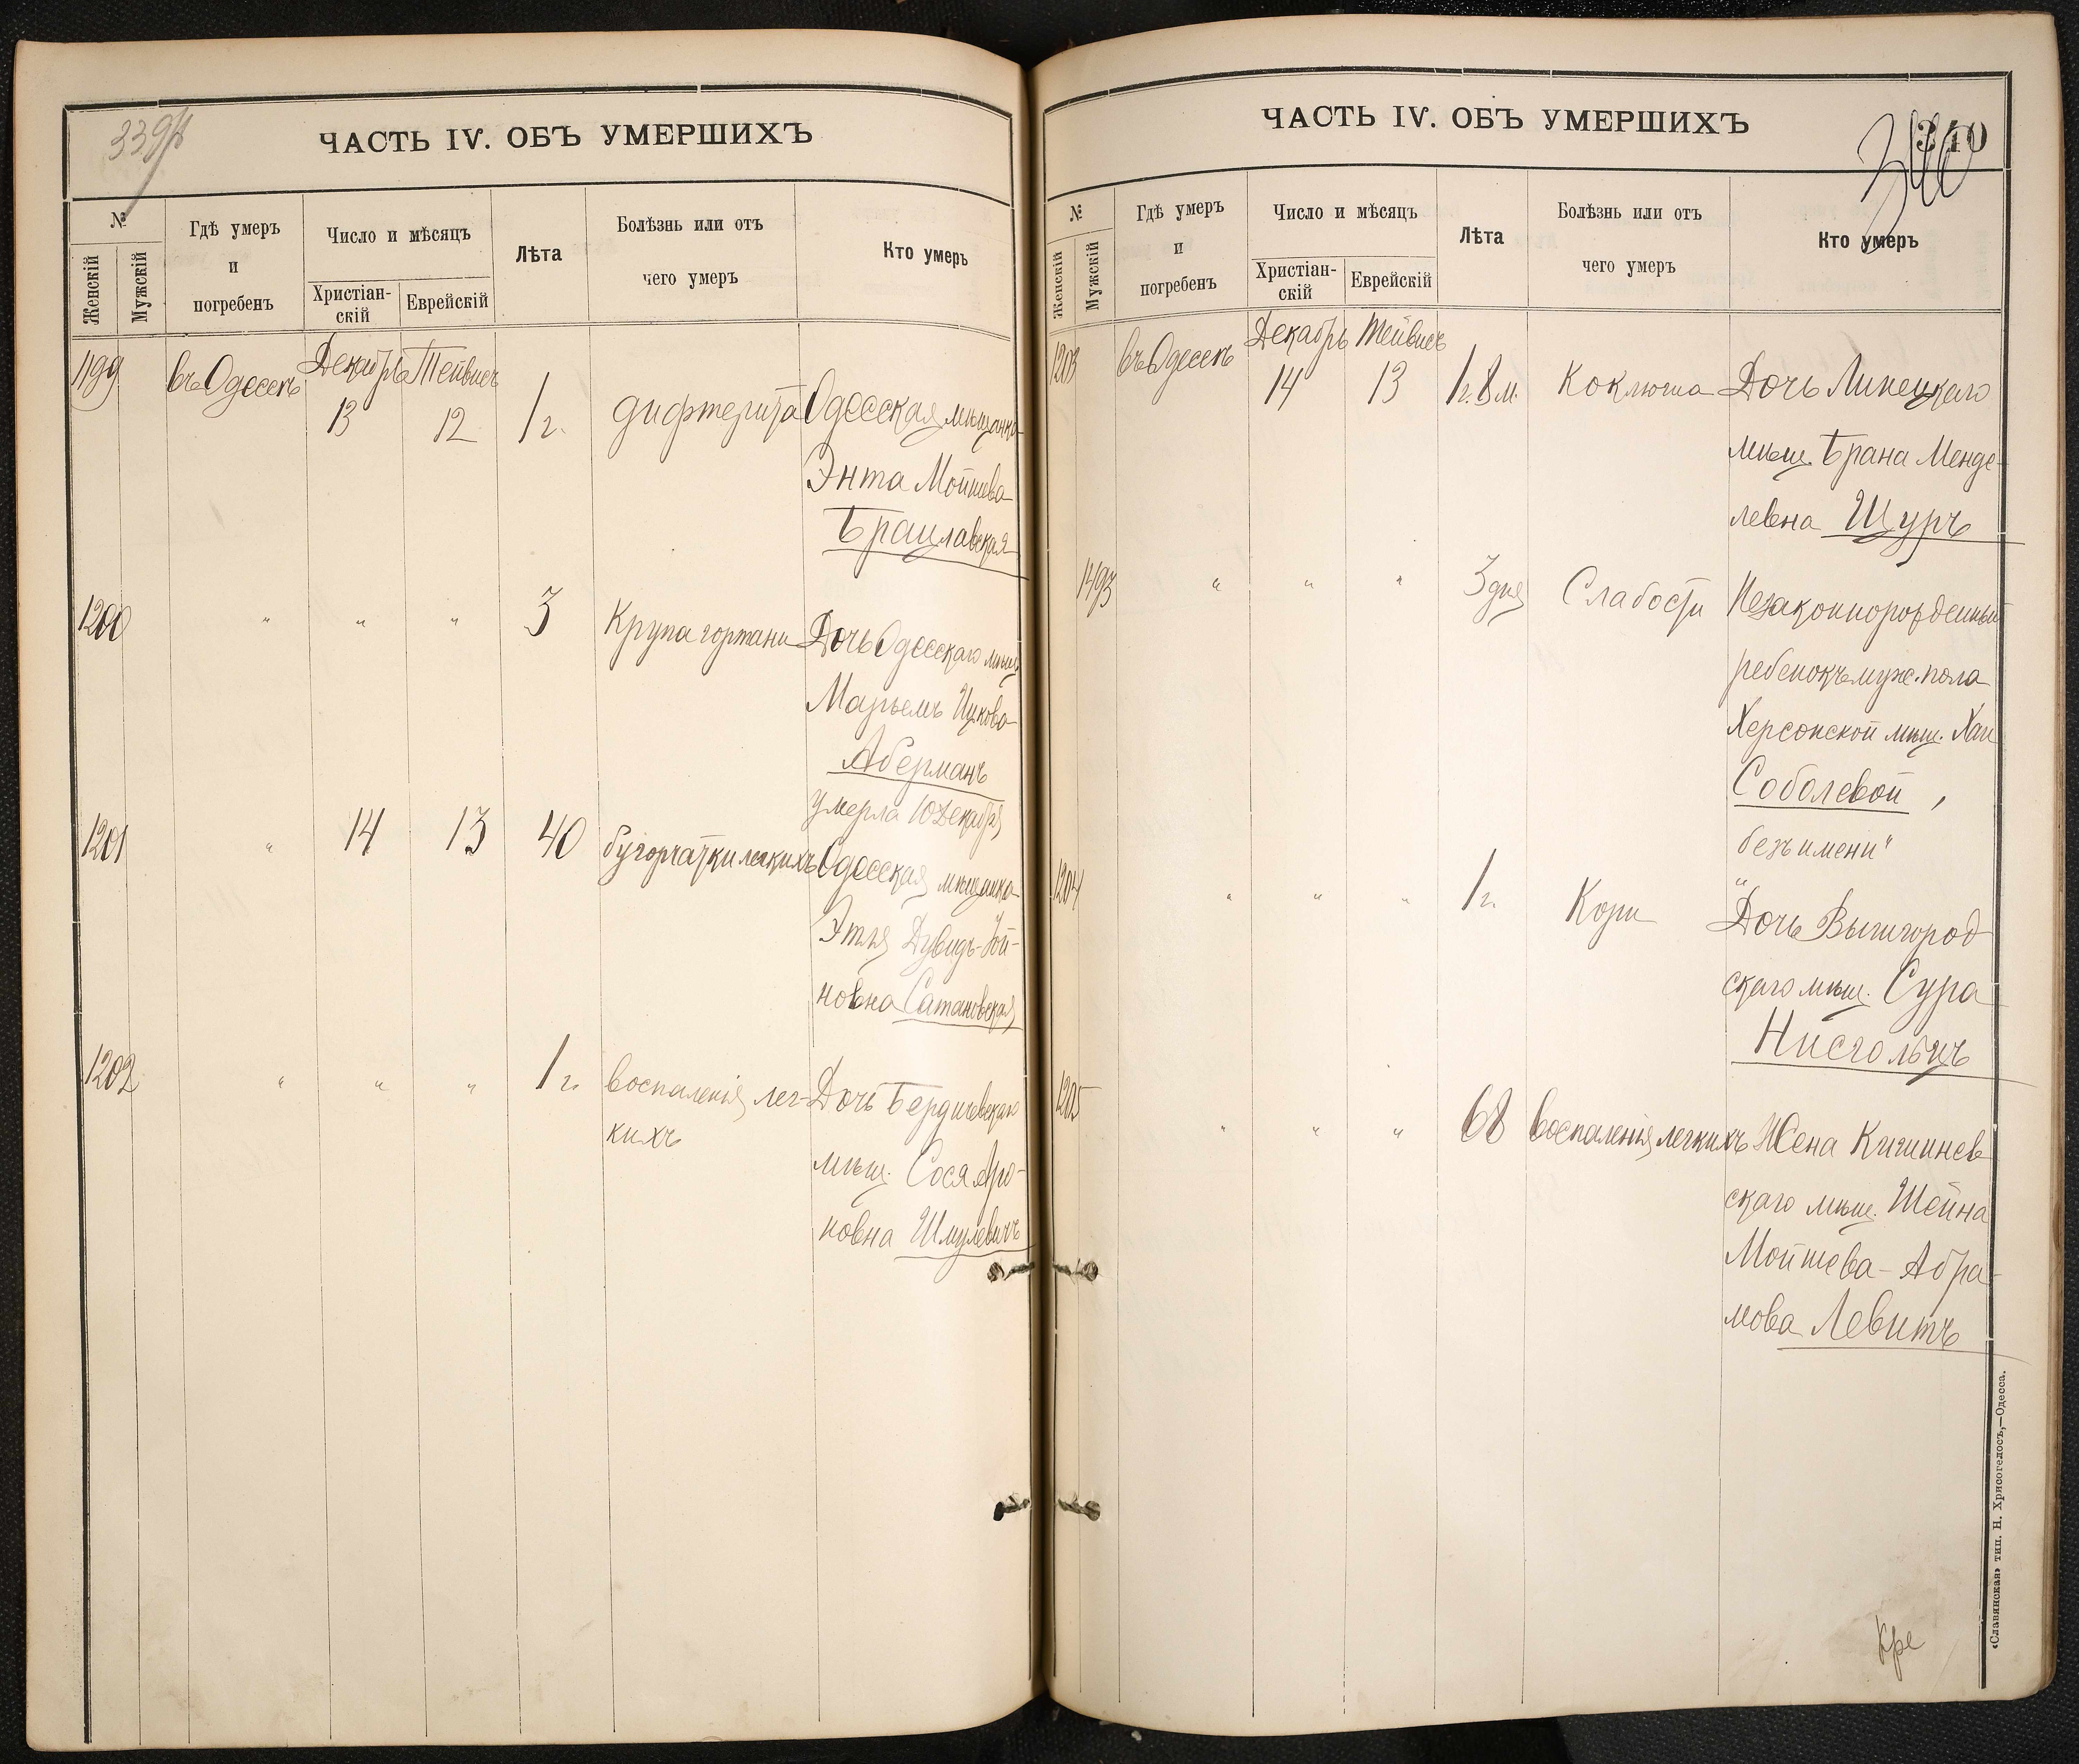 339
ЧАСТЬ IV. ОБЪ УМЕРШИХЪ
№
Женскій
Мужскій
Гдѣ умеръ
и
погребенъ
Число и мѣсяцъ
Христіан-
скій
Еврейскій
Лѣта
Болѣзнь или отъ
чего умеръ
Кто умеръ
1199 въ Одессѣ Декабрь Тейвисъ
13 12 1 г. дифтерита Одесская мѣщанка
Энта Мойшева
Брацлавская
1200 " " " 3 Крупа гортани Дочь Одесскаго мѣщ.
Марьемъ Ицкова
Аберманъ
умерла 10 Декабря
1201 " 14 13 40 бугорчатки легкихъ Одесская мѣщанка
Этля Дувидъ-Іой-
новна Сатановская
1202 " " " 1 г. воспаленія лег-
кихъ
Дочь Бердичевскаго
мѣщ. Сося Аро-
новна Шмулевичъ
ЧАСТЬ IV. ОБЪ УМЕРШИХЪ
340
340
№
Женскій
Мужскій
Гдѣ умеръ
и
погребенъ
Число и мѣсяцъ
Христіан-
скій
Еврейскій
Лѣта
Болѣзнь или отъ
чего умеръ
Кто умеръ
1203 въ Одессѣ Декабрь Тейвисъ
14 13 1 г. 8 м. Коклюша Дочь Липецкаго
мѣщ. Брана Менде-
левна Щуръ
1493 " " " 3 дня Слабости Незаконнорожденный
ребенокъ муж. пола
Херсонской мѣщ. Хаи
Соболевой,
"безъ имени"
1204 " " " 1 г. Кори Дочь Вышгород
скаго мѣщ. Сура
Нисгольцъ
1205 " " " 68 воспаленія легкихъ Жена Кишинев
скаго мѣщ. Шейна
Мойшева-Абра-
мова Левитъ
Кре
«Славянская» тип. Н. Хрисогелосъ,—Одесса.